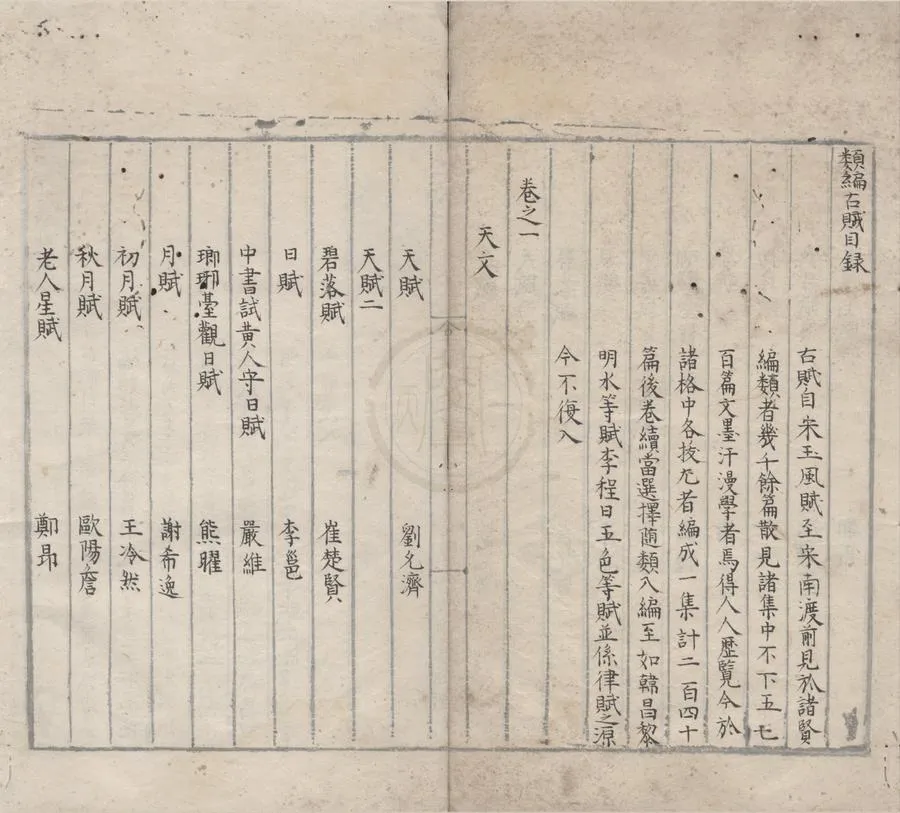 類編古賦目録
古賦自宋玉風賦至宋南渡前見於諸賢
編類者幾千餘篇散見諸集中不下五七
百篇文墨汗漫學者焉得人人歷覽今於
諸格中各拔尤者編成一集計二百四十
篇後卷續當選擇随類入編至如韓昌黎
明水等賦李程日五色等賦並係律賦之源
今不復入
卷之一
天文
天賦 劉允濟
天賦二
碧落賦 崔楚賢
日賦 李邕
中書試黄人守日賦 嚴維
瑯琊臺觀日賦 熊曜
月賦 謝希逸
初月賦 王冷然
秋月賦 歐陽詹
老人星賦 鄭昂